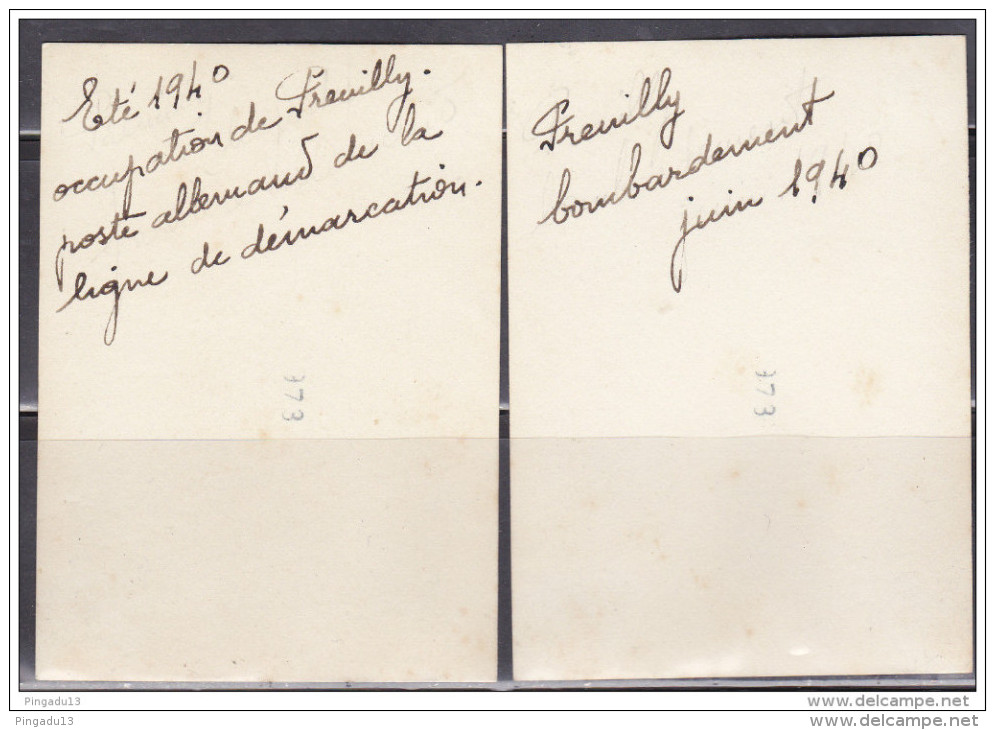 Eté 1940
occupation de Preuilly.
poste allemand de la
ligne de démarcation.
973
Preuilly
bombardement
juin 1940
973
Pingadu13
www.delcampe.net
Pingadu13
www.delcampe.net